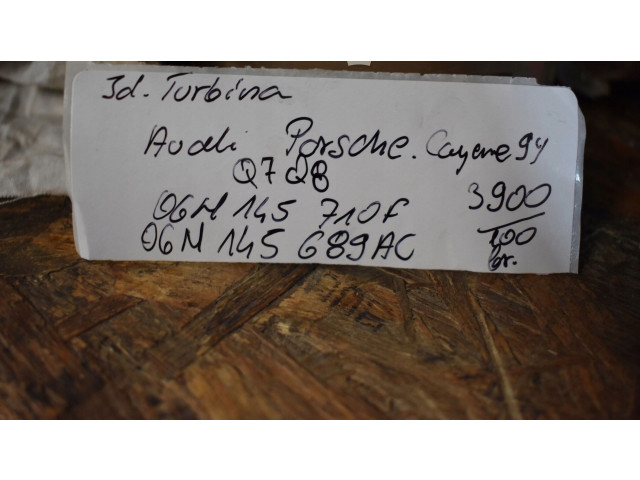 3d. Turbina
Audi Porsche. Cayene 9Y
Q7 Q8
06M 145 710F 3900
06M 145 689AC 100